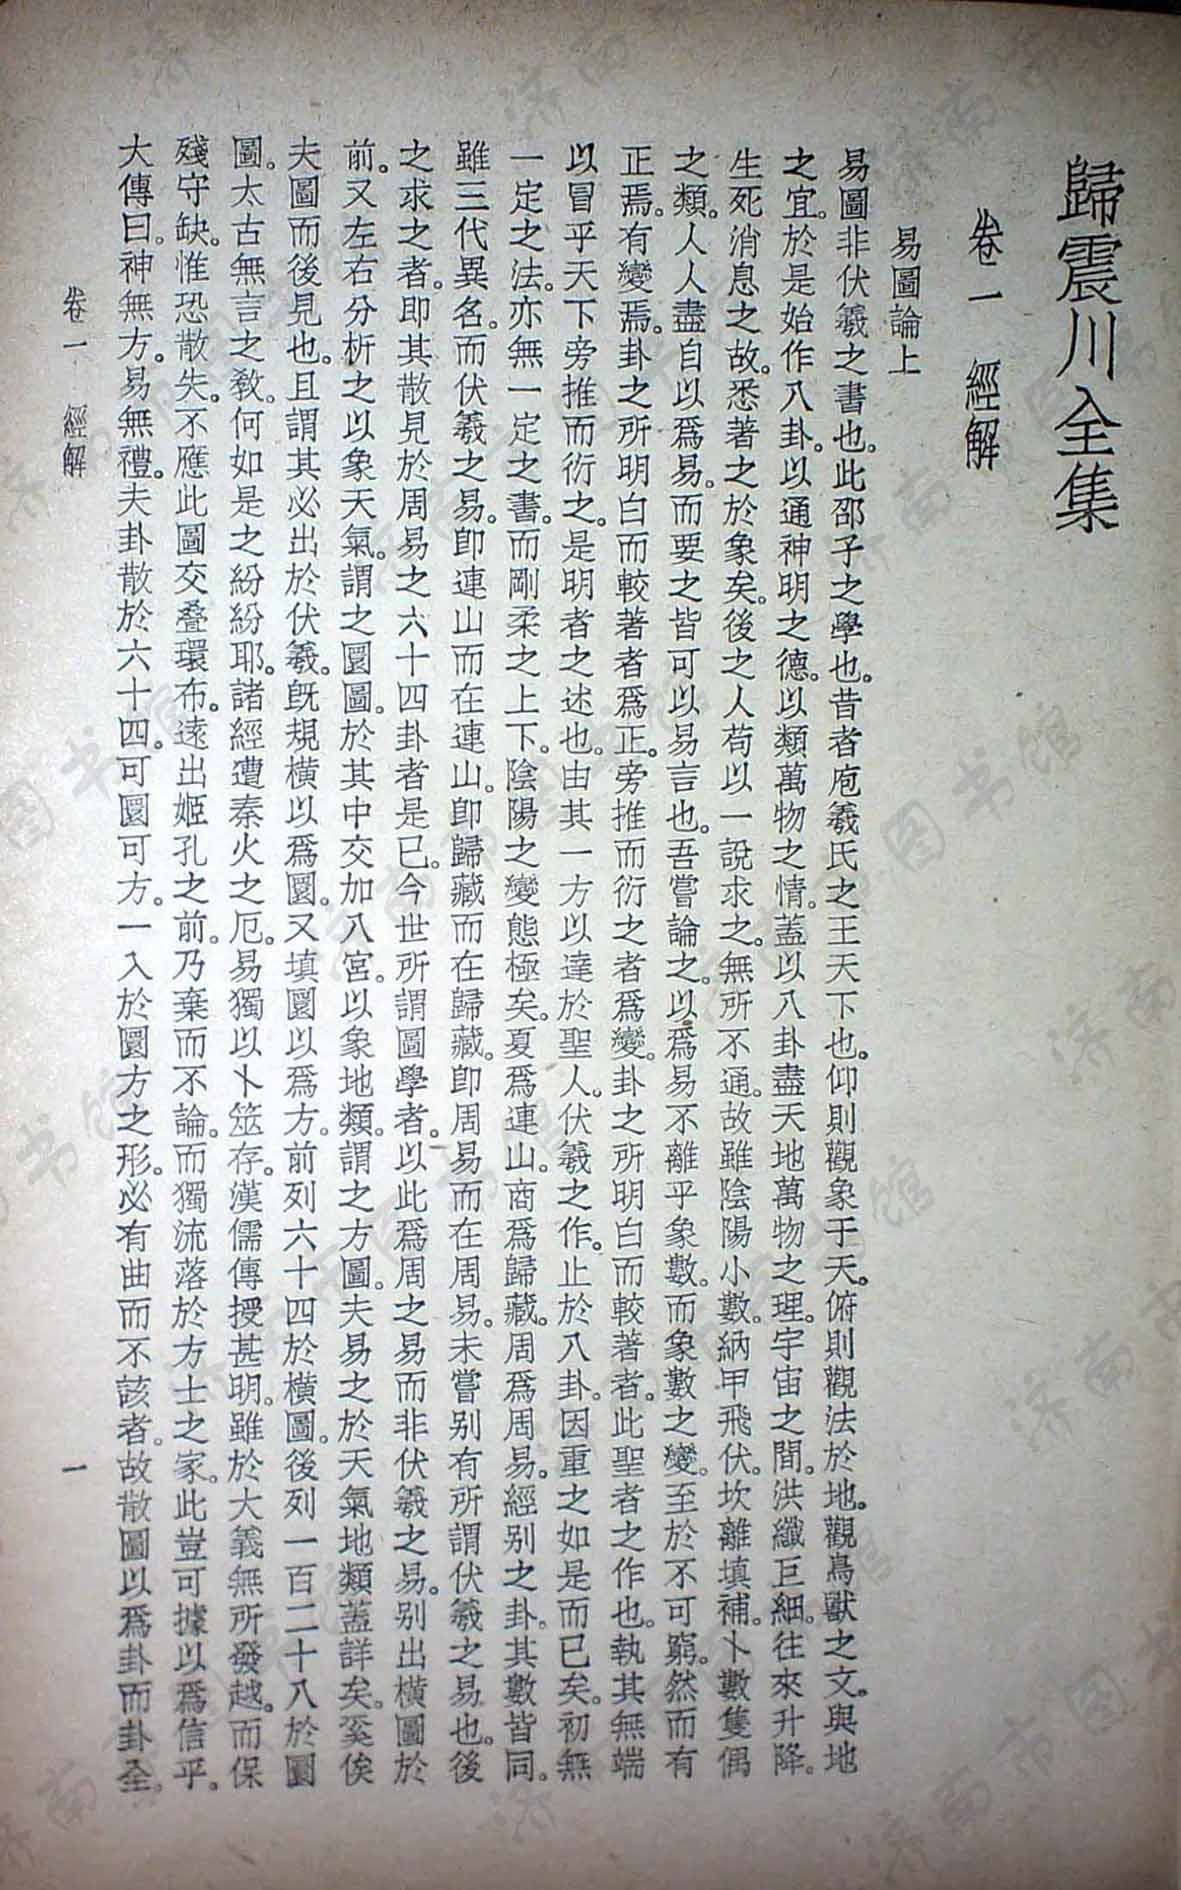 歸震川全集
卷一 經解
易圖論上
易圖非伏羲之書也。此邵子之學也。昔者庖羲氏之王天下也。仰則觀象于天。俯則觀法於地。觀鳥獸之文。與地
之宜。於是始作八卦。以通神明之德。以類萬物之情。蓋以八卦盡天地萬物之理。宇宙之間。洪纖巨細。往來升降。
生死消息之故。悉著之於象矣。後之人苟以一說求之。無所不通。故雖陰陽小數。納甲飛伏。坎離填補。卜數隻偶
之類。人人盡自以爲易。而要之皆可以易言也。吾嘗論之。以爲易不離乎象數。而象數之變。至於不可窮。然而有
正焉。有變焉。卦之所明白而較著者爲正。旁推而衍之者爲變。卦之所明白而較著者。此聖者之作也。執其無端
以冒乎天下。旁推而衍之。是明者之述也。由其一方以達於聖人。伏羲之作。止於八卦。因重之如是而已矣。初無
一定之法。亦無一定之書。而剛柔之上下。陰陽之變態極矣。夏爲連山。商爲歸藏。周爲周易。經别之卦。其數皆同。
雖三代異名。而伏羲之易。卽連山而在連山。卽歸藏而在歸藏。卽周易而在周易。未嘗别有所謂伏羲之易也。後
之求之者。即其散見於周易之六十四卦者是已。今世所謂圖學者。以此爲周之易而非伏羲之易。别出橫圖於
前。又左右分析之以象天氣。謂之圜圖。於其中交加八宮。以象地類。謂之方圖。夫易之於天氣地類蓋詳矣。奚俟
夫圖而後見也。且謂其必出於伏羲。旣規橫以爲圜。又填圜以爲方。前列六十四於橫圖。後列一百二十八於圜
圖。太古無言之敎。何如是之紛紛耶。諸經遭秦火之厄。易獨以卜筮存。漢儒傳授甚明。雖於大義無所發越。而保
殘守缺。惟恐散失。不應此圖交疊環布。遠出姬孔之前。乃棄而不論。而獨流落於方士之家。此豈可據以爲信乎。
大傳曰。神無方。易無禮。夫卦散於六十四。可圜可方。一入於圜方之形。必有曲而不該者。故散圖以爲卦而卦全。
卷一 經解
一